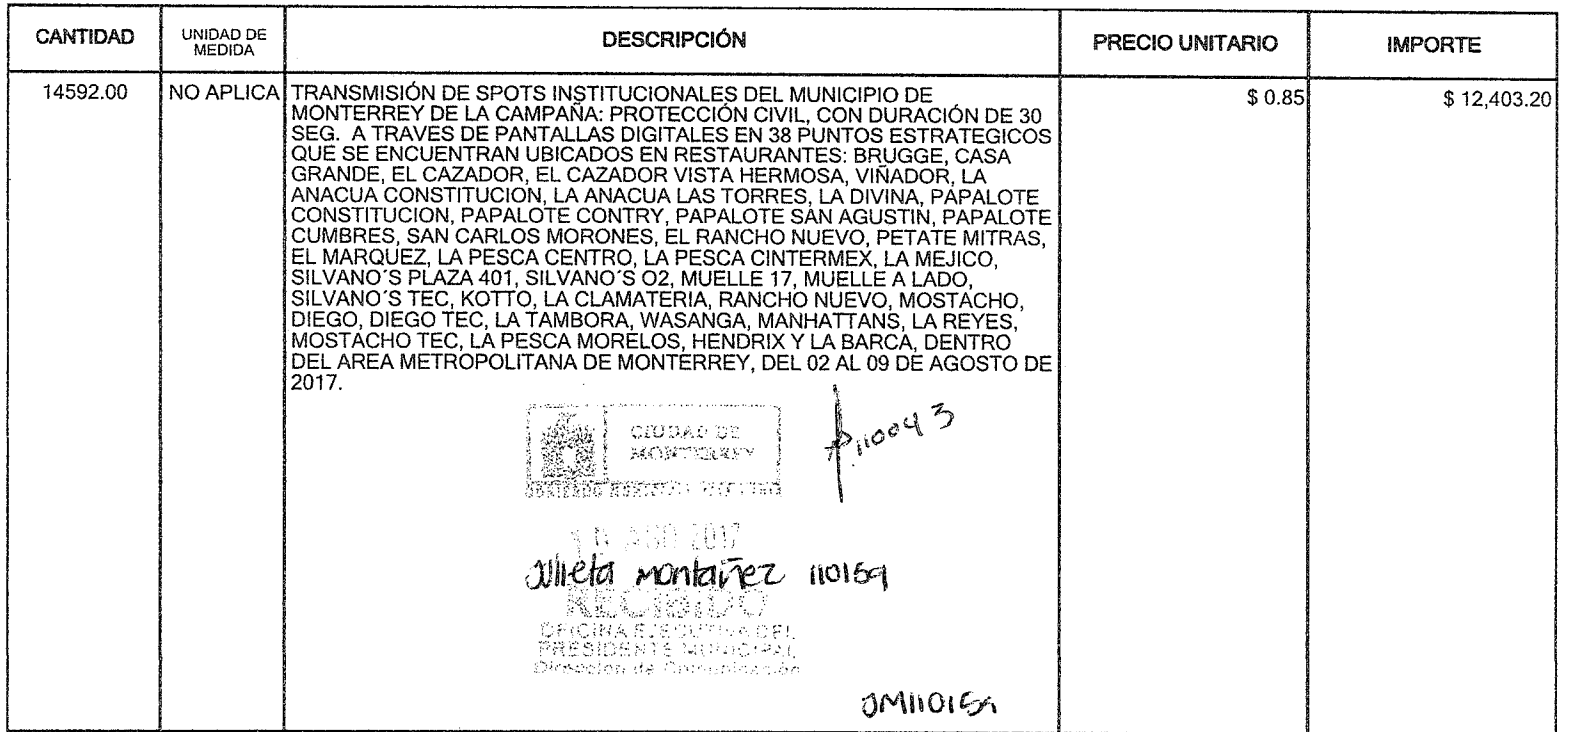 CANTIDAD
UNIDAD DE
MEDIDA
DESCRIPCIÓN
PRECIO UNITARIO
IMPORTE
14592.00
NO APLICA
TRANSMISIÓN DE SPOTS INSTITUCIONALES DEL MUNICIPIO DE
MONTERREY DE LA CAMPAÑA: PROTECCIÓN CIVIL, CON DURACIÓN DE 30
SEG. A TRAVES DE PANTALLAS DIGITALES EN 38 PUNTOS ESTRATEGICOS
QUE SE ENCUENTRAN UBICADOS EN RESTAURANTES: BRUGGE, CASA
GRANDE, EL CAZADOR, EL CAZADOR VISTA HERMOSA, VIÑADOR, LA
ANACUA CONSTITUCION, LA ANACUA LAS TORRES, LA DIVINA, PAPALOTE
CONSTITUCION, PAPALOTE CONTRY, PAPALOTE SAN AGUSTIN, PAPALOTE
CUMBRES, SAN CARLOS MORONES, EL RANCHO NUEVO, PETATE MITRAS,
EL MARQUEZ, LA PESCA CENTRO, LA PESCA CINTERMEX, LA MEJICO,
SILVANO´S PLAZA 401, SILVANO´S O2, MUELLE 17, MUELLE A LADO,
SILVANO´S TEC, KOTTO, LA CLAMATERIA, RANCHO NUEVO, MOSTACHO,
DIEGO, DIEGO TEC, LA TAMBORA, WASANGA, MANHATTANS, LA REYES,
MOSTACHO TEC, LA PESCA MORELOS, HENDRIX Y LA BARCA, DENTRO
DEL AREA METROPOLITANA DE MONTERREY, DEL 02 AL 09 DE AGOSTO DE
2017.
$ 0.85
$ 12,403.20
CIUDAD DE
MONTERREY
GOBIERNO MUNICIPAL
110043
AGO 2017
Julieta Montañez 110159
RECIBIDO
OFICINA EJECUTIVA DEL
PRESIDENTE MUNICIPAL
Dirección de Comunicación
JM110159